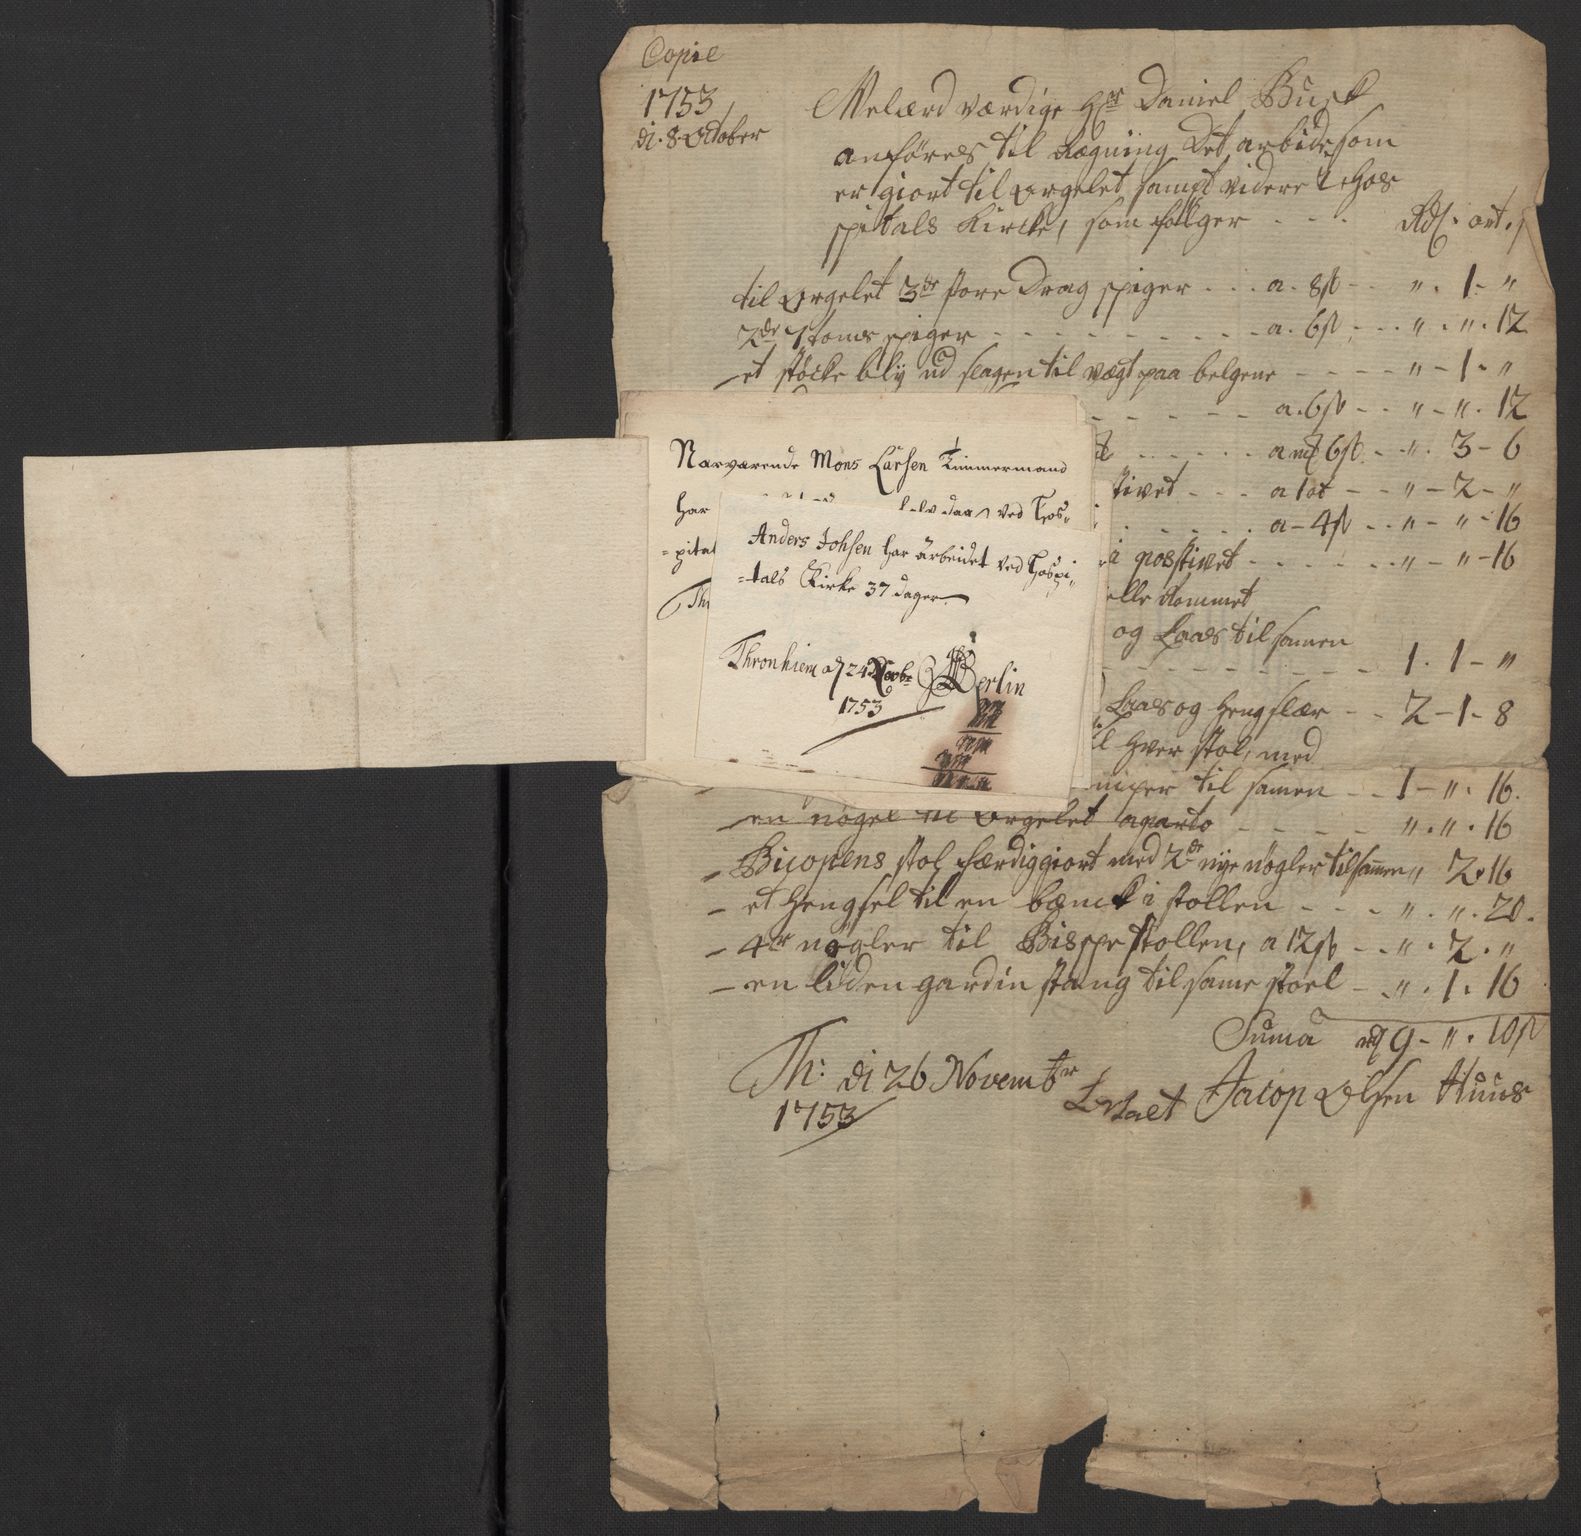 Copie
1753
di. 8 October
Velærdværdige Hr Daniel Busk
anføres til Regning Det arbide som
er giort til orgelet sampt videre i Hos
spitals Kirche, som følger - - - Rdl. ort. s
til orgelet 3de store Drag spiger - - - a. 8s - - " . 1 - "
2de spiger - - - a. 6s - - - " . " . 12
- et støcke bly ud slagen til vægt paa belgene - - - - " - 1 - "
- - - a. 6s - - " - " . 12
- - - 6s - - " . 3 - 6
stivet - - - a 1 ort - - " - 2 - "
- - - a - 4s - - " - " - 16
i posstivet - - - " - " - 16
elle Rommet
og Laas til samen
- - - 1 . 1 - "
Laas og Hengslær - - 2 - 1 - 8
til hver stol, med
til samen - - 1 - " . 16.
- en nøgel til Orgelet aparto - - - - " . " . 16
- Bicopens stol færdiggiort med 2de nye nøgler tilsamen " 2 . 16
- et Hengsel til en bænck i stollen - - - " . " . 20.
- 4re nøgler til Bispe stollen, a 12s - - " . 2 . "
- en liden gardin stang til same stoel - - " . 1 . 16
Suma 9 - " . 10s
Th: di 26 Novembr
1753
Jacop Olsen Huus
Nærværende Mons Larsen Timmermand
har dag ved Hos-
-pital
Th
Anders Johsen har arbeidet ved Hospi-
-tals Kirke 37 dager.
Thronhiem d 24 Novbr
1753
Berlin